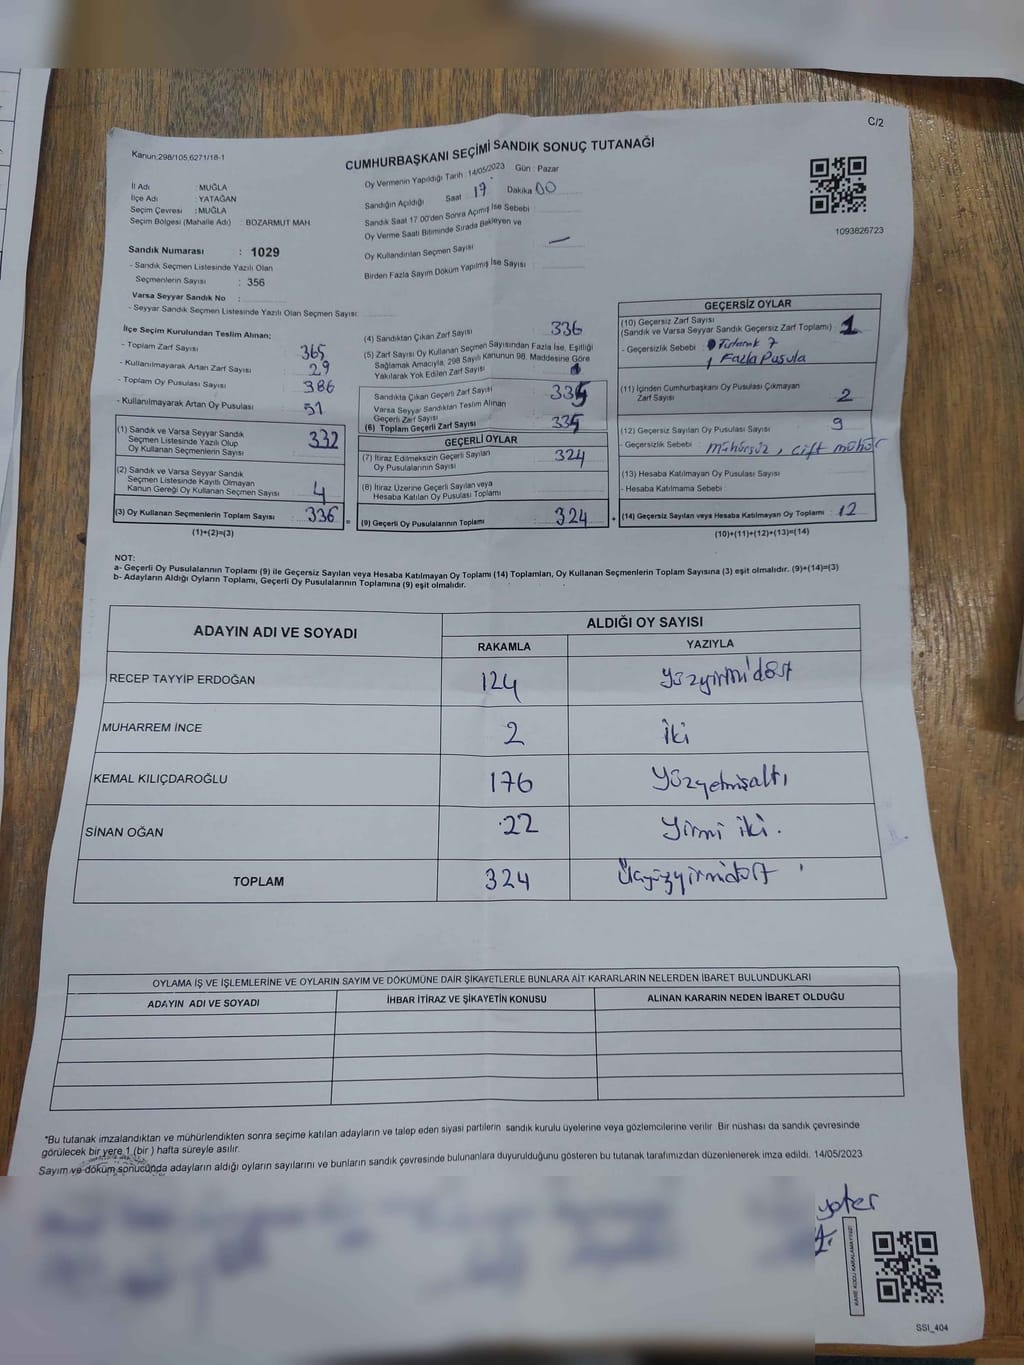 C/2
Kanun:298/105,6271/18-1
CUMHURBAŞKANI SEÇİMİ SANDIK SONUÇ TUTANAĞI
İl Adı : MUĞLA
İlçe Adı : YATAĞAN
Seçim Çevresi : MUĞLA
Seçim Bölgesi (Mahalle Adı) : BOZARMUT MAH.
Sandık Numarası : 1029
- Sandık Seçmen Listesinde Yazılı Olan
Seçmenlerin Sayısı : 356
Varsa Seyyar Sandık No :
- Seyyar Sandık Seçmen Listesinde Yazılı Olan Seçmen Sayısı:
Oy Vermenin Yapıldığı Tarih : 14/05/2023 Gün : Pazar
Sandığın Açıldığı Saat : 17 Dakika 00
Sandık Saat 17 00'den Sonra Açımış İse Sebebi :
Oy Verme Saati Bitiminde Sırada Bekleyen ve
Oy Kullandırılan Seçmen Sayısı : —
Birden Fazla Sayım Döküm Yapılmış İse Sayısı :
1093826723
İlçe Seçim Kurulundan Teslim Alınan;
- Toplam Zarf Sayısı : 365
- Kullanılmayarak Artan Zarf Sayısı : 29
- Toplam Oy Pusulası Sayısı : 386
- Kullanılmayarak Artan Oy Pusulası : 51
(1) Sandık ve Varsa Seyyar Sandık
Seçmen Listesinde Yazılı Olup
Oy Kullanan Seçmenlerin Sayısı : 332
(2) Sandık ve Varsa Seyyar Sandık
Seçmen Listesinde Kayıtlı Olmayan
Kanun Gereği Oy Kullanan Seçmen Sayısı : 4
(3) Oy Kullanan Seçmenlerin Toplam Sayısı : 336 =
(1)+(2)=(3)
(4) Sandıktan Çıkan Zarf Sayısı : 336
(5) Zarf Sayısı Oy Kullanan Seçmen Sayısından Fazla İse, Eşitliği
Sağlamak Amacıyla, 298 Sayılı Kanunun 98. Maddesine Göre
Yakılarak Yok Edilen Zarf Sayısı :
Sandıkta Çıkan Geçerli Zarf Sayısı : 335
Varsa Seyyar Sandıktan Teslim Alınan
Geçerli Zarf Sayısı :
(6) Toplam Geçerli Zarf Sayısı : 335
GEÇERLİ OYLAR
(7) İtiraz Edilmeksizin Geçerli Sayılan
Oy Pusulalarının Sayısı : 324
(8) İtiraz Üzerine Geçerli Sayılan veya
Hesaba Katılan Oy Pusulası Toplamı :
(9) Geçerli Oy Pusulalarının Toplamı : 324 +
GEÇERSİZ OYLAR
(10) Geçersiz Zarf Sayısı
(Sandık ve Varsa Seyyar Sandık Geçersiz Zarf Toplamı) : 1
- Geçersizlik Sebebi : Tutanak 7
1 Fazla Pusula
(11) İçinden Cumhurbaşkanı Oy Pusulası Çıkmayan
Zarf Sayısı : 2
(12) Geçersiz Sayılan Oy Pusulası Sayısı : 9
- Geçersizlik Sebebi : mühürsüz, çift mühür
(13) Hesaba Katılmayan Oy Pusulası Sayısı :
- Hesaba Katılmama Sebebi :
(14) Geçersiz Sayılan veya Hesaba Katılmayan Oy Toplamı : 12
(10)+(11)+(12)+(13)=(14)
NOT:
a- Geçerli Oy Pusulalarının Toplamı (9) ile Geçersiz Sayılan veya Hesaba Katılmayan Oy Toplamı (14) Toplamları, Oy Kullanan Seçmenlerin Toplam Sayısına (3) eşit olmalıdır. (9)+(14)=(3)
b- Adayların Aldığı Oyların Toplamı, Geçerli Oy Pusulalarının Toplamına (9) eşit olmalıdır.
ADAYIN ADI VE SOYADI ALDIĞI OY SAYISI
RAKAMLA YAZIYLA
RECEP TAYYİP ERDOĞAN 124 Yüzyirmidört
MUHARREM İNCE 2 İki
KEMAL KILIÇDAROĞLU 176 Yüzyetmişaltı
SİNAN OĞAN 22 Yirmi iki.
TOPLAM 324 Üçyüzyirmidört
OYLAMA İŞ VE İŞLEMLERİNE VE OYLARIN SAYIM VE DÖKÜMÜNE DAİR ŞİKAYETLERLE BUNLARA AİT KARARLARIN NELERDEN İBARET BULUNDUKLARI
ADAYIN ADI VE SOYADI İHBAR İTİRAZ VE ŞİKAYETİN KONUSU ALINAN KARARIN NEDEN İBARET OLDUĞU
*Bu tutanak imzalandıktan ve mühürlendikten sonra seçime katılan adayların ve talep eden siyasi partilerin sandık kurulu üyelerine veya gözlemcilerine verilir. Bir nüshası da sandık çevresinde
görülecek bir yere 1 (bir) hafta süreyle asılır.
Sayım ve döküm sonucunda adayların aldığı oyların sayılarını ve bunların sandık çevresinde bulunanlara duyurulduğunu gösteren bu tutanak tarafımızdan düzenlenerek imza edildi. 14/05/2023
KARE KODU KARALAMAYINIZ!
SSI_404